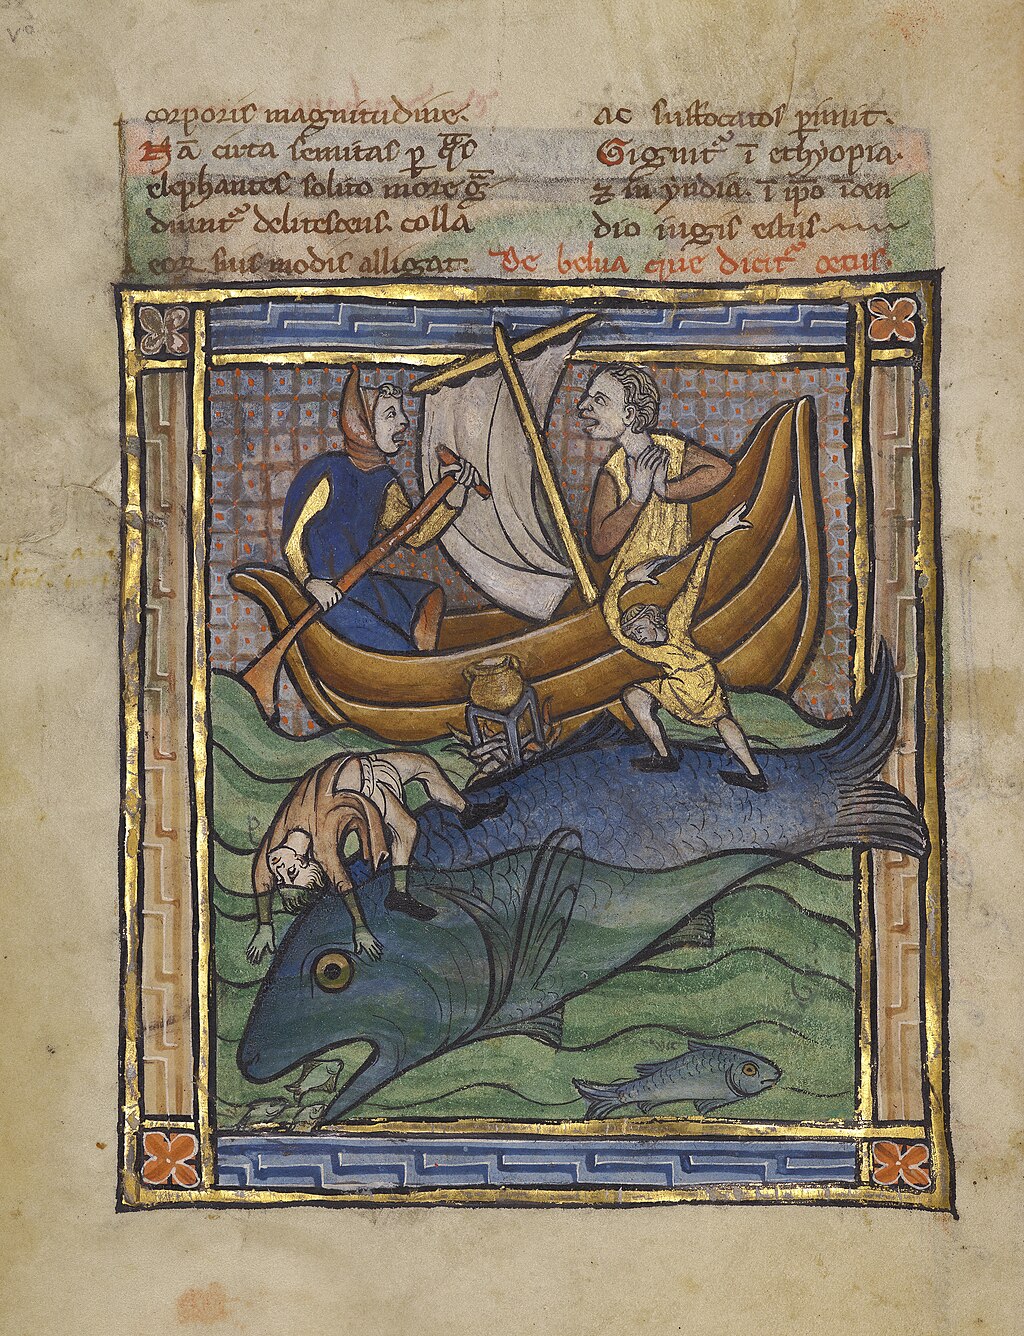 corporis magnitudine.
Nā circa semitas p̄ q̄s
elephantes solito more g̃
diunt᷑ delitescens. colla
eoꝝ suis modis alligat.
ac suffocatos ꝑimit.
Gignit᷑ ī ethyopia.
⁊ in yndia. ī ip̄o īcen
dio iugis estus
De belua que dicit᷑ cetus.